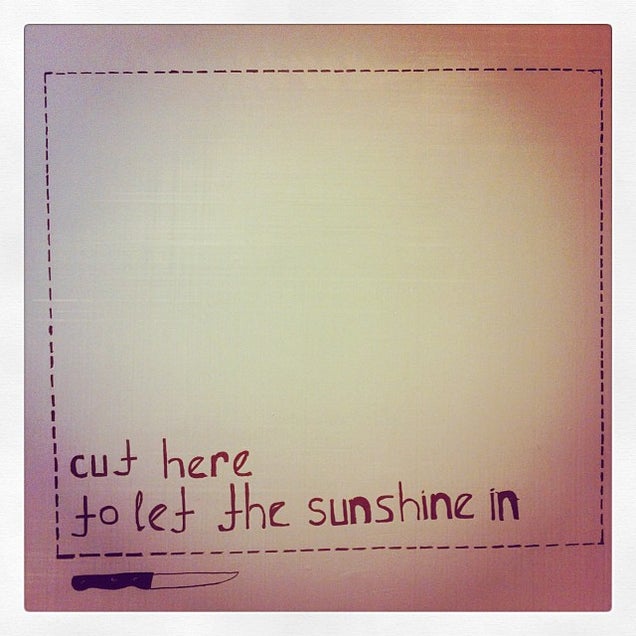 cut here
to let the sunshine in